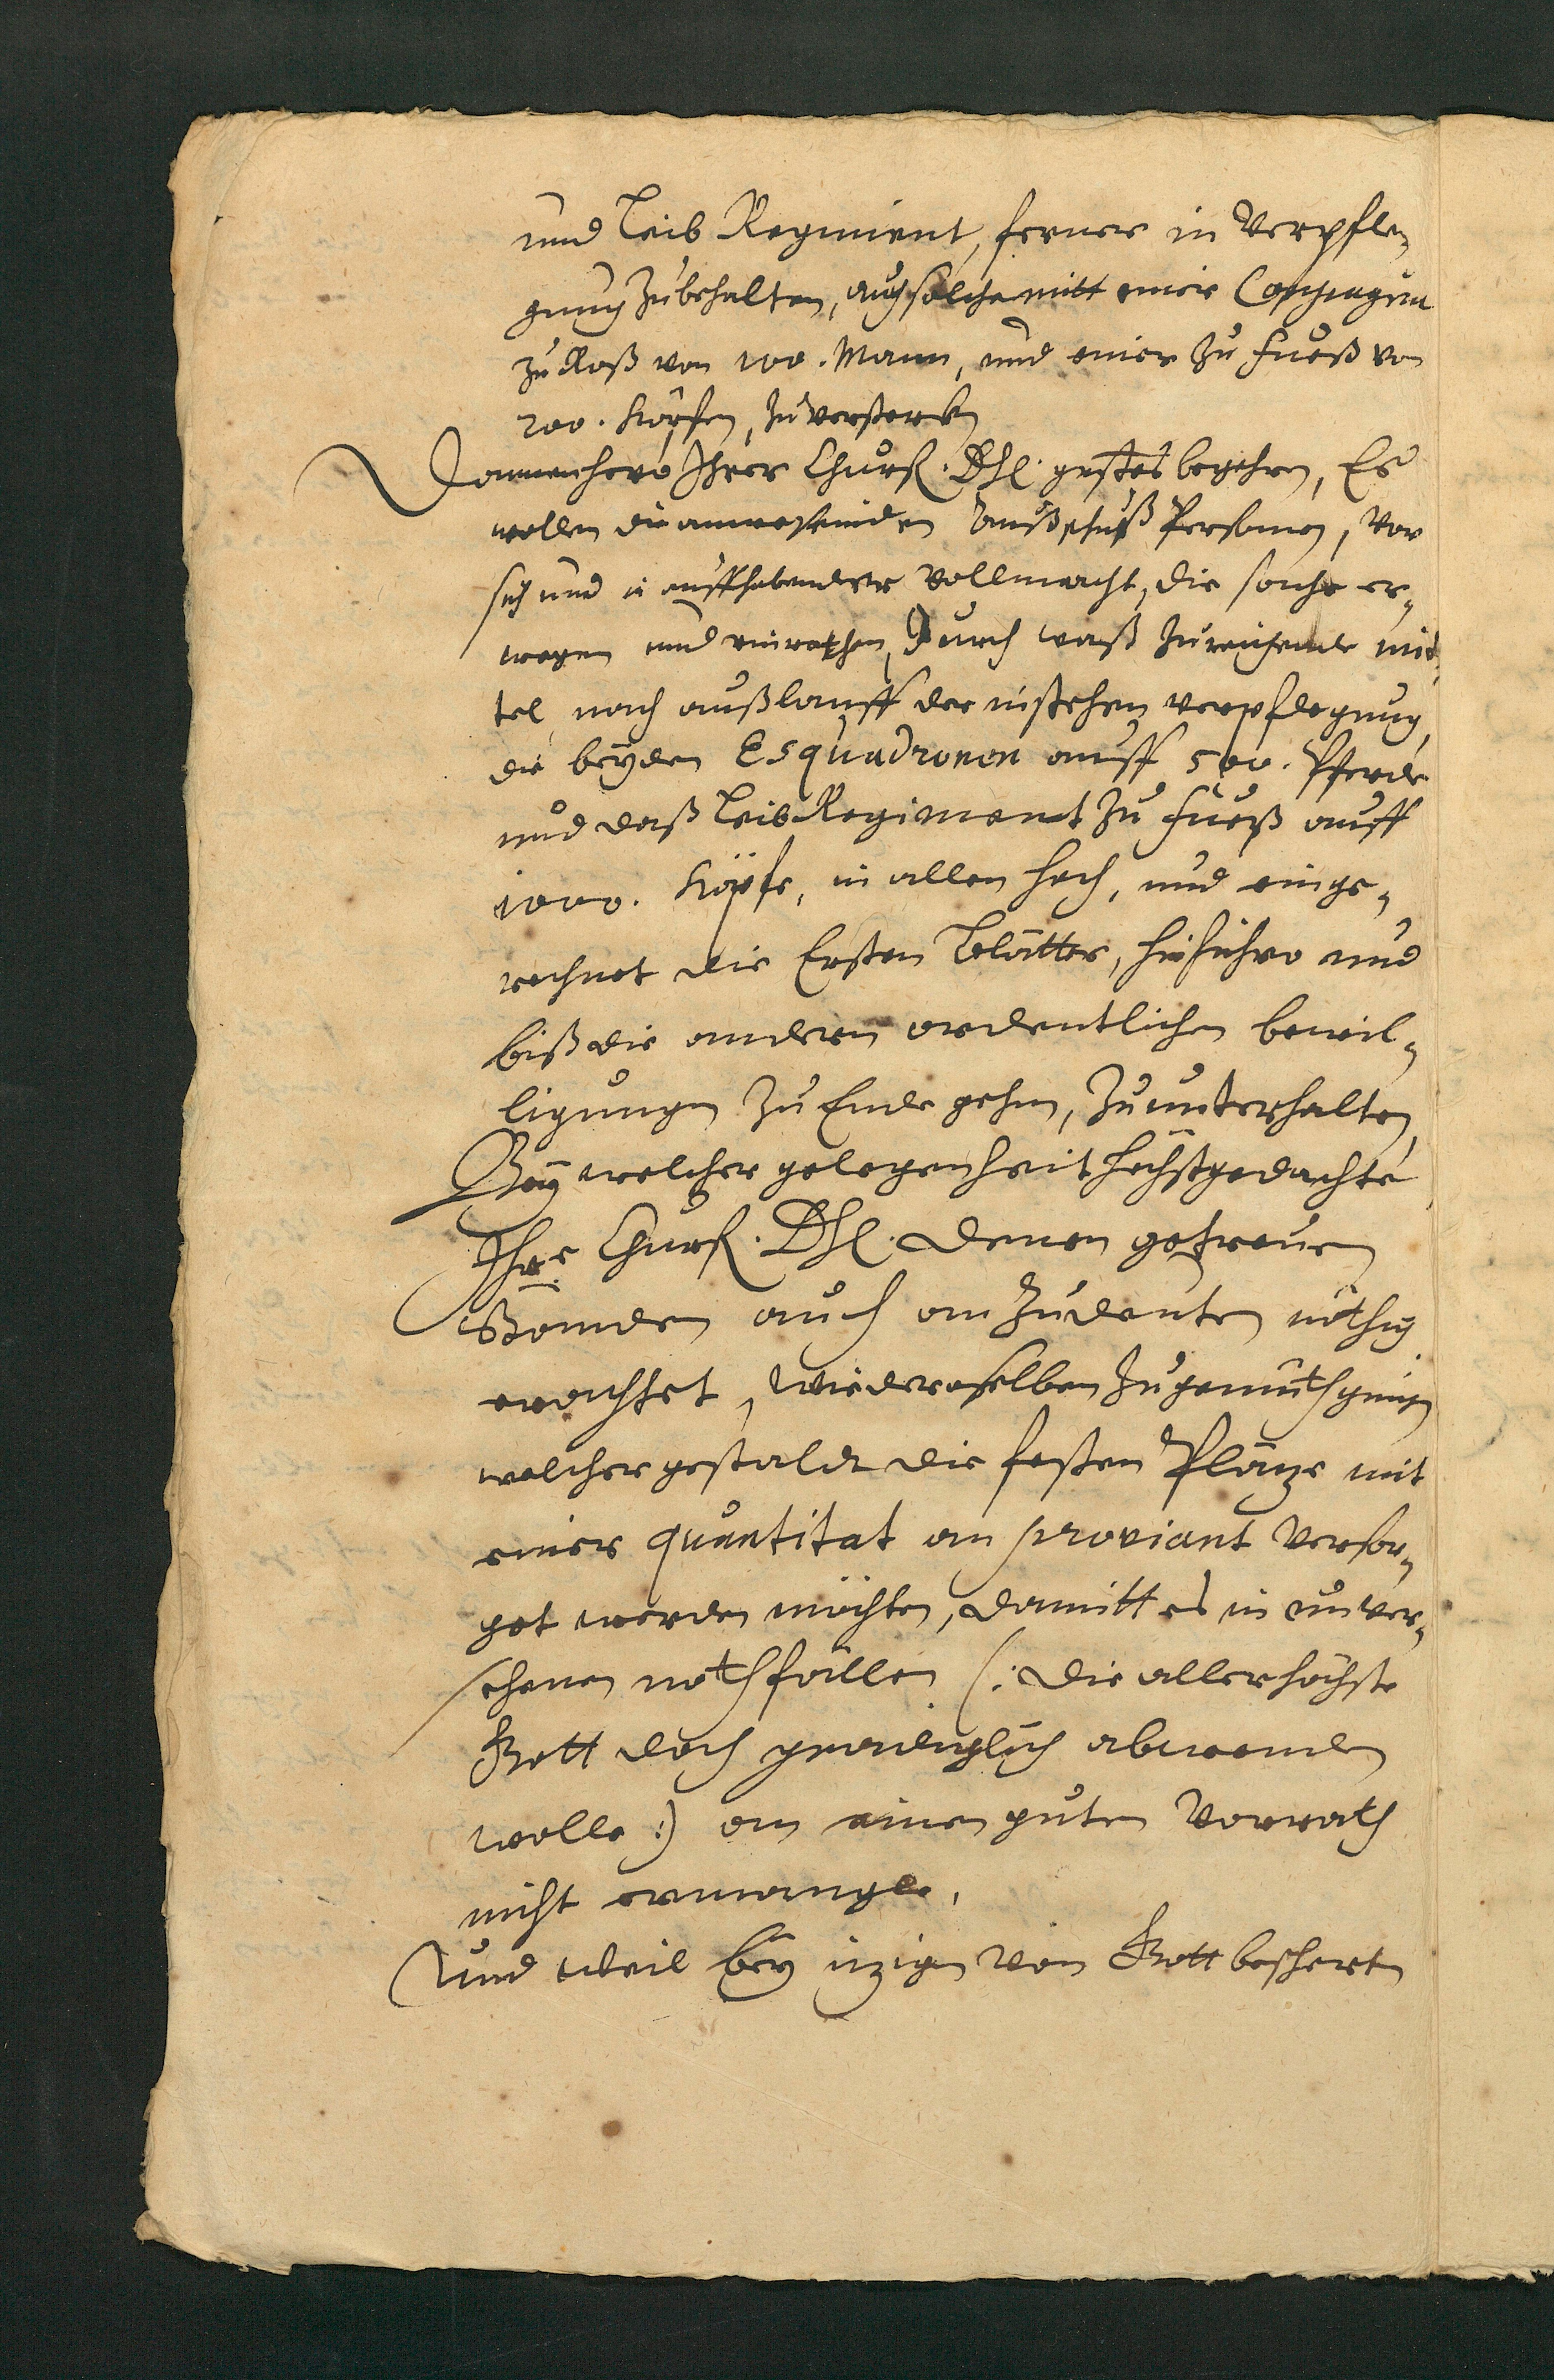 und Leib Regiment, ferner in Verpfle¬
gung zubehalten, auch solche mitt einer Compagnia
zu Roß von 100. Mann, und einer zu Fueß von
200. Köpfen, zuversterken
Dannenhero Ihrer Churf. Dhl. gnstes begehren, Es
wollen die anwesenden Außschuß Personen, Vor
sich und in auffhabender Vollmacht, die sache er¬
wegen und einrathen, Durch waß zureichende mit¬
tel, nach außlauff der instehen verpflegung,
die beyden Esquadronen auff 500. Pferde
und daß Leib Regiment zu Fueß auff
1000. Köpfe, in allen hoch, und einge¬
rechnet die Ersten Blätter, hinführo und
biß die andern ordentlichen bewil¬
ligungen zu Ende gehen, zu unterhalten,
Bey welcher gelegenheit höchstgedachte
Ihre Churf. Dhl. denen getreuen
Ständen auch an zudeuten nöthig
erachtet, wie deroselben zugemüth ging
welcher gestaldt die festen Pläze mit
einer quantitat an proviant Versor¬
get werden möchten, damitt es in unver¬
sehenen nothfällen (: die allerhöchste
Gott doch gnediglich abwenden
wolle :) an einen guten Vorrath
nicht ermangle,
Und weil bey izigen von Gott bescherten